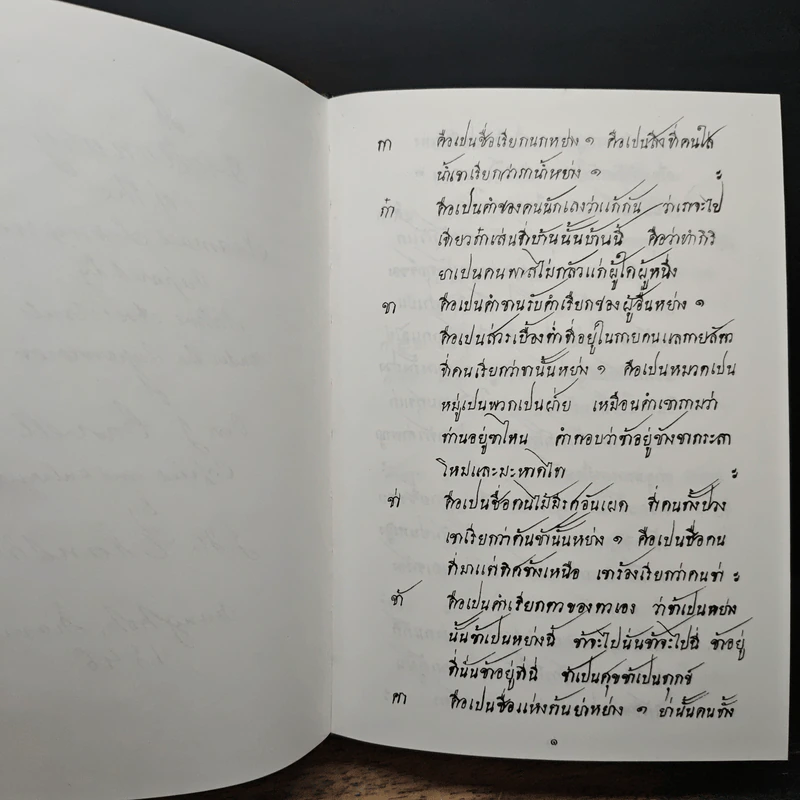 กา คือเปนชื่อเรียกนกหย่าง ๑ คือเปนสิ่งที่คนใส่
น้ำเขาเรียกว่ากาน้ำหย่าง ๑ ะ
ก๋า คือเปนคำของคนนักเลงว่าแก่กัน ว่าเราจะไป
เทียวก๋าเล่นที่บ้านนั้นบ้านนี้ คือว่าทำกิริ
ยาเปนคนพาลไม่กลัวแก่ผู้ใดผู้หนึ่ง
ขา คือเปนคำขานรับคำเรียกของผู้อื่นหย่าง ๑
คือเปนส่วรเบื้องต่ำที่อยู่ในกายคนแลกายสัตว
ที่คนเรียกว่าขานั้นหย่าง ๑ คือเปนหมวดเปน
หมู่เปนพวกเปนฝ่าย เหมือนคำเขาถามว่า
ท่านอยู่ขาไหน คำตอบว่าข้าอยู่ข้างขากระลา
โหมและมะหาดไท ะ
ข่า คือเปนชื่อต้นไม้มีรศอันเผด ที่คนทั้งปวง
เขาเรียกว่าต้นข่านั้นหย่าง ๑ คือเปนชื่อคน
ที่มาแต่ทิศข้างเหนือ เขาร้องเรียกว่าคนข่า ะ
ข้า คือเปนคำเรียกตัวของตัวเอง ว่าข้าเปนหย่าง
นั้นข้าเปนหย่างนี้ ข้าจะไปนั่นข้าจะไปนี่ ข้าอยู่
ที่นั่นข้าอยู่ที่นี่ ข้าเปนศุขข้าเปนทุกข์
คา คือเปนชื่อแห่งต้นย่าหย่าง ๑ ย่านั้นคนทั้ง
๑